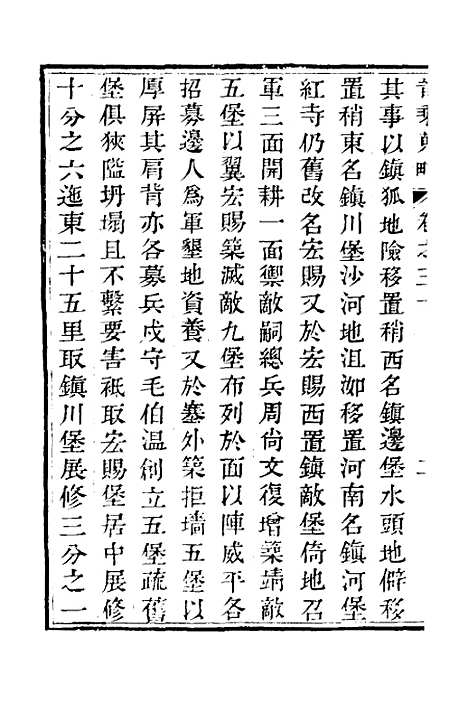 晉乘蒐略卷之三十
其事以鎮狐地險移置稍西名鎮邊堡水頭地僻移
置稍東名鎮川堡沙河地沮洳移置河南名鎮河堡
紅寺仍舊改名宏賜又於宏賜西置鎮敵堡倚地召
軍三面開耕一面禦敵嗣總兵周尙文復增築靖敵
五堡以翼宏賜築滅敵九堡布列於面以陣威平各
招募邊人爲軍墾地資養又於塞外築拒墻五堡以
厚屏其肩背亦各募兵戍守毛伯温創立五堡疏舊
堡俱狹隘坍塌且不繫要害祇取宏賜堡居中展修
十分之六迤東二十五里取鎮川堡展修三分之一